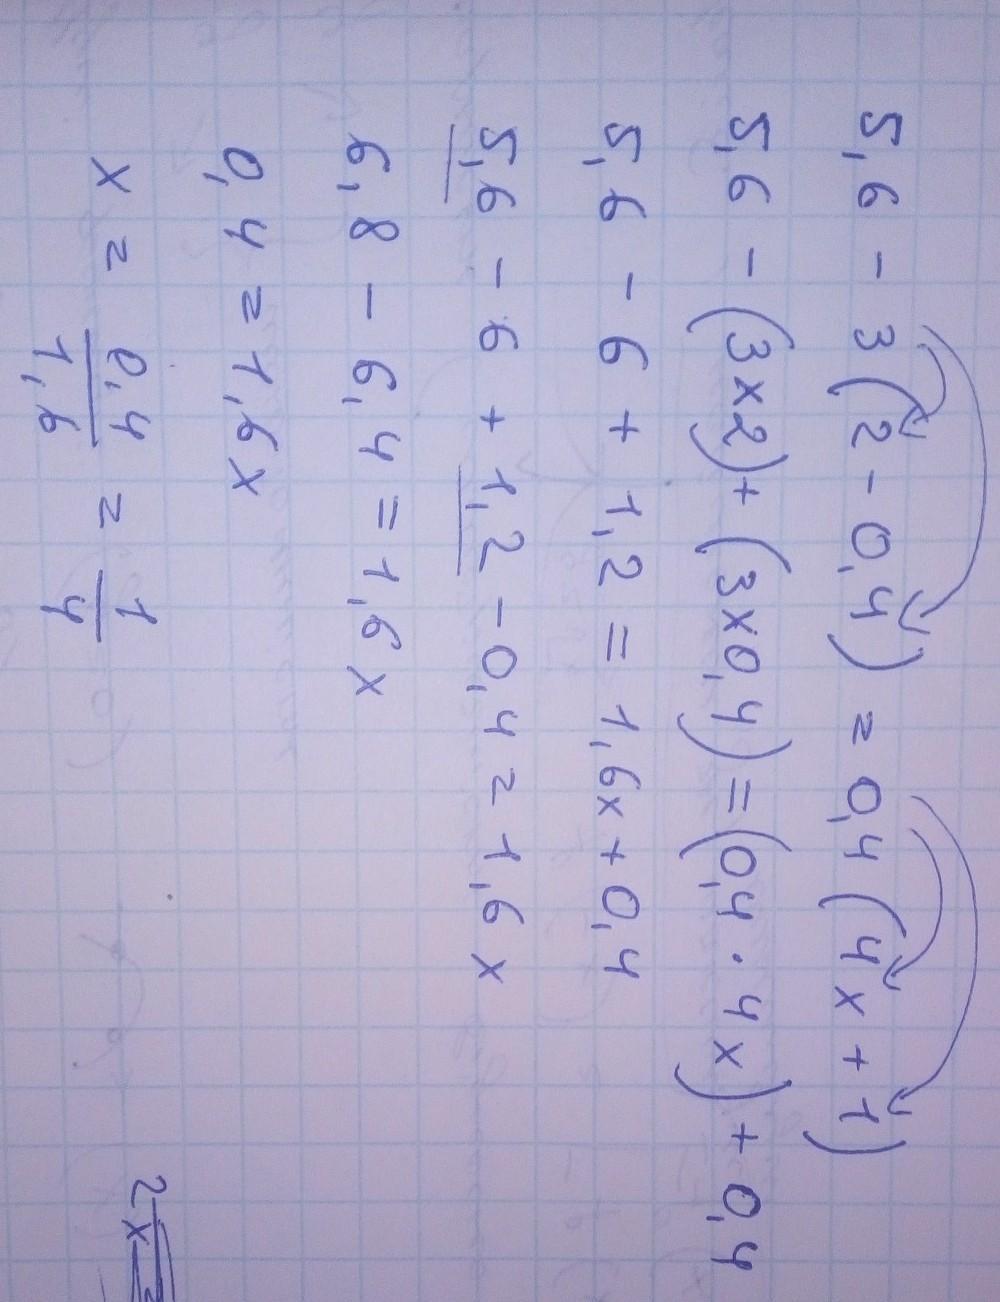 5,6 - 3(2 - 0,4) = 0,4(4x + 1)
5,6 - (3x2) + (3x0,4) = (0,4 · 4x) + 0,4
5,6 - 6 + 1,2 = 1,6x + 0,4
5,6 - 6 + 1,2 - 0,4 = 1,6x
6,8 - 6,4 = 1,6x
0,4 = 1,6x
x = 0,4/1,6 = 1/4